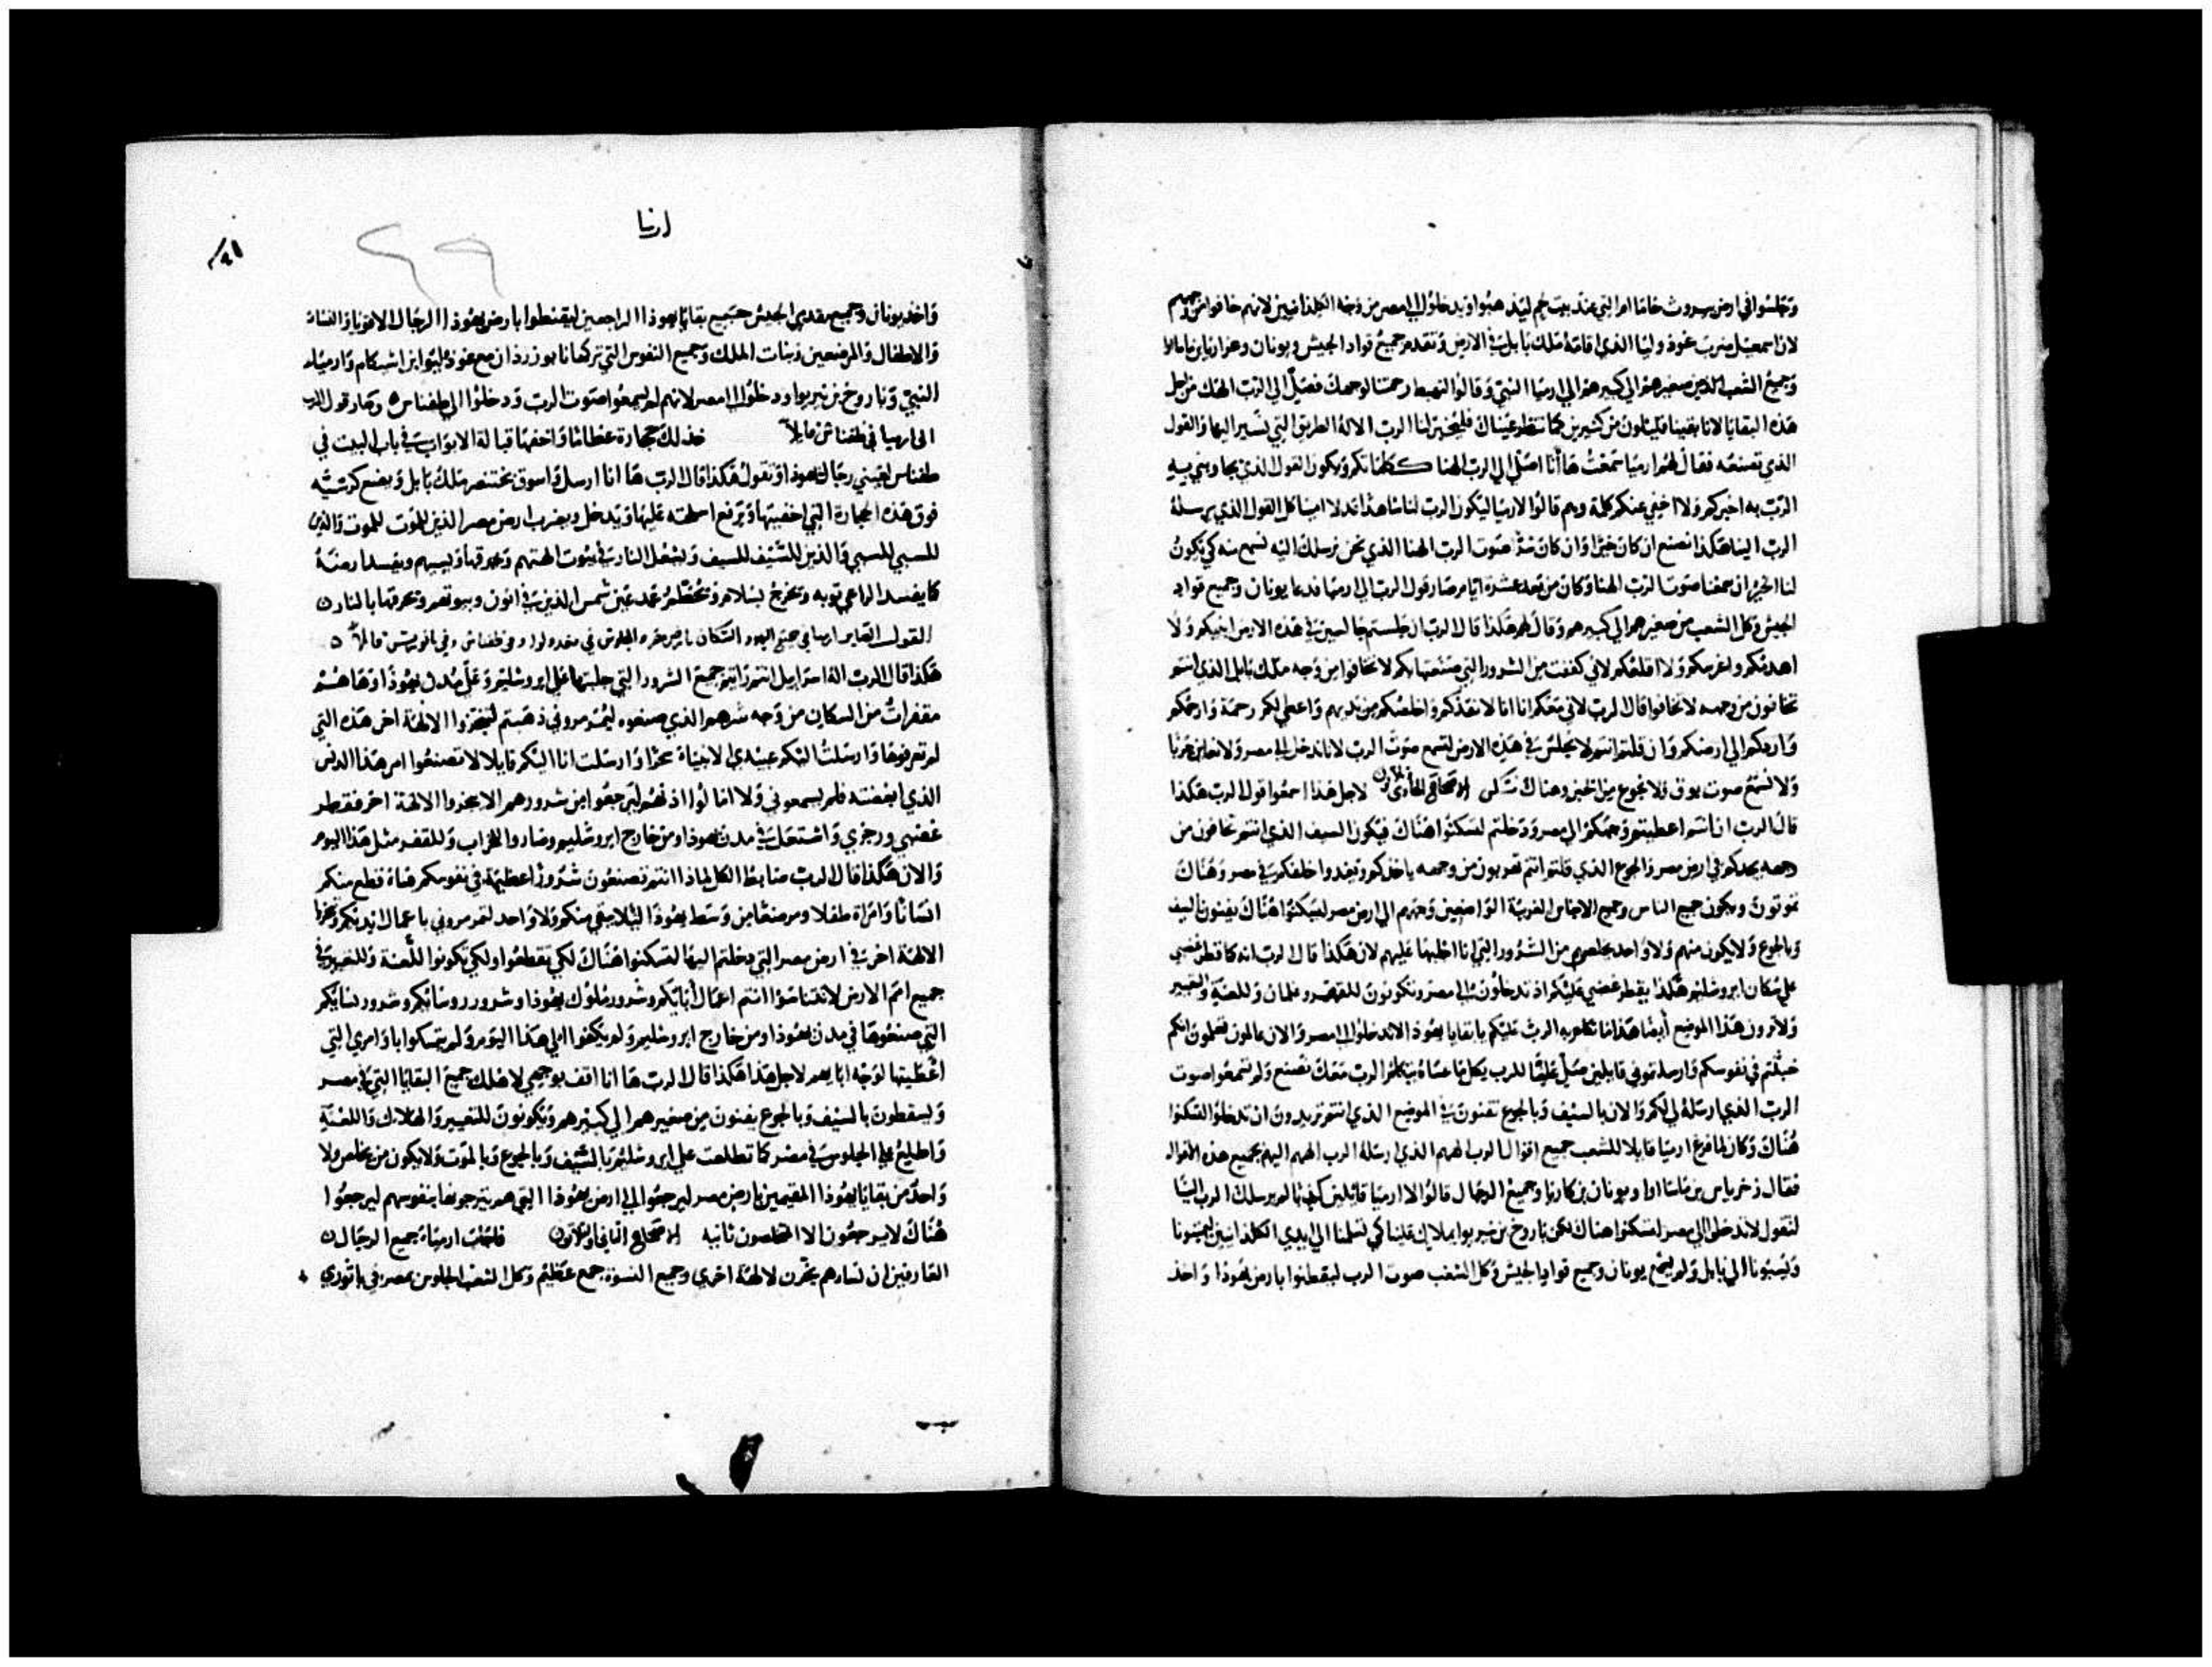 وجلسوا في ارض بيروث خاماام التي عند بيت لحم ليذهبوا ويدخلوا الى مصر من وجه الكلدانيين لانهم خافوا من وجههم
لان اسمعيل ضرب غودوليا الذي اقامه ملك بابل في الارض وتقدم جميع قواد الجيش ويونان وعزاريا بن ماسالا
وجميع الشعب الذين من صغيرهم الى كبيرهم الى ارميا النبي وقالوا لتهبط رحمتنا لوجهك فصلّ الى الرب الهك من اجل
هذه البقايا لاننا بقينا قليلون من كثيرين كما تنظر عيناك فليخبر لنا الرب الاله الطريق التي نسير اليها والقول
الذي نصنعه فقال لهم ارميا سمعت ها أنا اصلي الى الرب الهنا ككلماتكم ويكون القول الذي يجاوبني به
الرب به اخبركم ولا اخفي عنكم كلمة وهم قالوا لارميا ليكون الرب لنا شاهدا عدلا امينا كل القول الذي يرسله
الرب الينا هكذا نصنع ان كان خيرا وان كان شرا صوت الرب الهنا الذي نحن نرسلك اليه نسمع منه كي يكون
لنا الخير ان سمعنا صوت الرب الهنا وكان من بعد عشرة ايام صار قول الرب الى ارميا فدعا يونان وجميع قواد
الجيش وكل الشعب من صغيرهم الى كبيرهم وقال لهم هكذا قال الرب ان جلستم جالسين في هذه الارض ابنيكم ولا
اهدمكم واغرسكم ولا اقلعكم لاني كففت من الشرور التي صنعتها بكم لا تخافوا من وجه ملك بابل الذي انتم
تخافون من وجهه لا تخافوا قال الرب لاني معكم انا لانقذكم واخلصكم من يديهم واعطي لكم رحمة وارحمكم
واردكم الى ارضكم وان قلتم انتم لا نجلس في هذه الارض لنسمع صوت الرب لاننا ندخل الى مصر ولا نعاين حربا
ولا نسمع صوت بوق ولا نجوع من الخبز وهناك نسكن الاصحاح الحادي لاجل هذا اسمعوا قول الرب هكذا
قال الرب ان انتم اعطيتم وجهكم الى مصر ودخلتم لتسكنوا هناك فيكون السيف الذي انتم تخافون من
وجهه يجدكم في ارض مصر والجوع الذي قلتم انتم تهربون من وجهه ياخذكم خلفكم في مصر وهناك
تموتون ويكون جميع الناس وجميع الاجناس الغريبة الواضعين وجههم الى ارض مصر ليسكنوا هناك يفنون بالسيف
وبالجوع ولا يكون منهم ولا واحد يخلص من الشرور التي انا اجلبها عليهم لان هكذا قال الرب انه كما قطر غضبي
على سكان ايروشليم هكذا يقطر غضبي عليكم اذ تدخلون الى مصر وتكونون للقفر وللعنة والتعيير
ولا ترون هذا الموضع أيضا هذا ما تكلم به الرب عليكم يا بقايا يهوذا لا تدخلوا الى مصر والان عالمون تعلمون انكم
خبثتم في نفوسكم وارسلتموني قايلين صل علينا للرب بكل ما عساه يتكلم الرب معك نصنع ولم تسمعوا صوت
الرب الذي ارسله لي لكم والان بالسيف وبالجوع تفنون في الموضع الذي انتم تريدون ان تدخلوا لتسكنوا
هناك وكان لما فرغ ارميا قايلا للشعب جميع اقوال الرب الههم الذي ارسله الرب الههم اليهم بجميع هذه الاقوال
فقال زخرياس بن ماساوا ويونان بن كاريا وجميع الرجال قالوا لارميا قايلين كذبا لم يرسلك الرب الينا
لتقول لا تدخلوا الى مصر لتسكنوا هناك لكن باروخ بن نيريوا يملايك علينا كي تسلمنا الى ايدي الكلدانيين ليميتونا
وليسبونا الى بابل ولم يسمع يونان وجميع قواد الجيش وكل الشعب صوت الرب ليقطنوا بارض يهوذا واخذ
ارميا
واخذ يونان وجميع مقدمي الجيش جميع بقايا يهوذا الراجعين ليقطنوا بارض يهوذا الرجال الاقويا والنساء
والاطفال والمرضعين وبنات الملك وجميع النفوس التي تركها نابوزرذان مع غودوليوا بن اشيكام وارميا
النبي وباروخ بن نيريوا ودخلوا الى مصر لانهم لم يسمعوا صوت الرب ودخلوا الى طفناس وصار قول الرب
الى ارميا في طفناس قايلا خذ لك حجارة عظاما واخفها قبالة الابواب في باب البيت في
طفناس لعيني رجال يهوذا وتقول هكذا قال الرب ها انا ارسل واسوق بختنصر ملك بابل ويضع كرسيه
فوق هذه الحجارة التي اخفيتها ويرفع اسلحته عليها ويدخل ويضرب ارض مصر الذين للموت للموت والذين
للسبي للسبي والذين للسيف للسيف ولتشعل النار في بيوت الهتهم ويحرقها ويسبيهم ويفسد ارض
كما يفسد الراعي ثوبه ويخرج بسلام وتحطم عمد عين شمس الذين في انون وبيوتهم وتحرقها بالنار
القول الصاير ارميا في جميع اليهود السكان بارض مصر الجلوس في مغدولوا وفي طفناس وفي قايلا
هكذا قال الرب اله اسراييل انتم رايتم جميع الشرور التي جلبتها على ايروشليم وعلى مدن يهوذا وها هم
مقفرات من السكان من وجه شرهم الذي صنعوه ليمرمروني ذهبتم لتبخروا لالهة اخر هذه التي
لم تعرفوها وارسلت اليكم عبيدي الانبياء سحرا وارسلت انا اليكم قايلا لا تصنعوا امر هذا الدنس
الذي ابغضته فلم يسمعوني ولا امالوا اذنهم ليرجعوا من شرورهم الا يبخروا لالهة اخر فقطر
غضبي ورجزي واشتعل في مدن يهوذا ومن خارج ايروشليم وصاروا للخراب وللقفر مثل هذا اليوم
والان هكذا قال الرب ضابط الكل لماذا انتم تصنعون شرورا عظيمة في نفوسكم قطع منكم
انسانا وامراة طفلا ومرضعا من وسط يهوذا ليلا يبقى منكم ولا واحد لتمرمروني باعمال ايديكم وتبخروا
لالهة اخر في ارض مصر التي دخلتم اليها لتسكنوا هناك لكي تقطعوا ولكي تكونوا للعنة وللتعيير في
جميع امم الارض لا تتناسوا انتم اعمال أبايكم وشرور ملوك يهوذا وشرور روسائكم وشرور نسايكم
التي صنعوها في مدن يهوذا ومن خارج ايروشليم ولم يكفوا الى هذا اليوم ولم يتمسكوا باوامري التي
اعطيتها لوجه ابايهم لاجل هذا هكذا قال الرب ها انا اقف بوجهي لاهلك جميع البقايا التي في مصر
ويسقطون بالسيف وبالجوع يفنون من صغيرهم الى كبيرهم ويكونون للتعيير والهلاك واللعنة
واطلع على الجلوس في مصر كما تطلعت على ايروشليم بالسيف وبالجوع وبالموت ولا يكون من يخلص ولا
واحد من بقايا يهوذا المقيمين بارض مصر ليرجعوا الى ارض يهوذا التي هم يترجونها بنفوسهم ليرجعوا
هناك لا يرجعون الا المتخلصون ثانيه الاصحاح الثاني والثلاثون فاجابت ارمياء جميع الرجال
العارفين ان نساءهم يبخرن لالهة اخرى وجميع النسوة جمع عظيم وكل الشعب الجلوس بمصر في باثوري